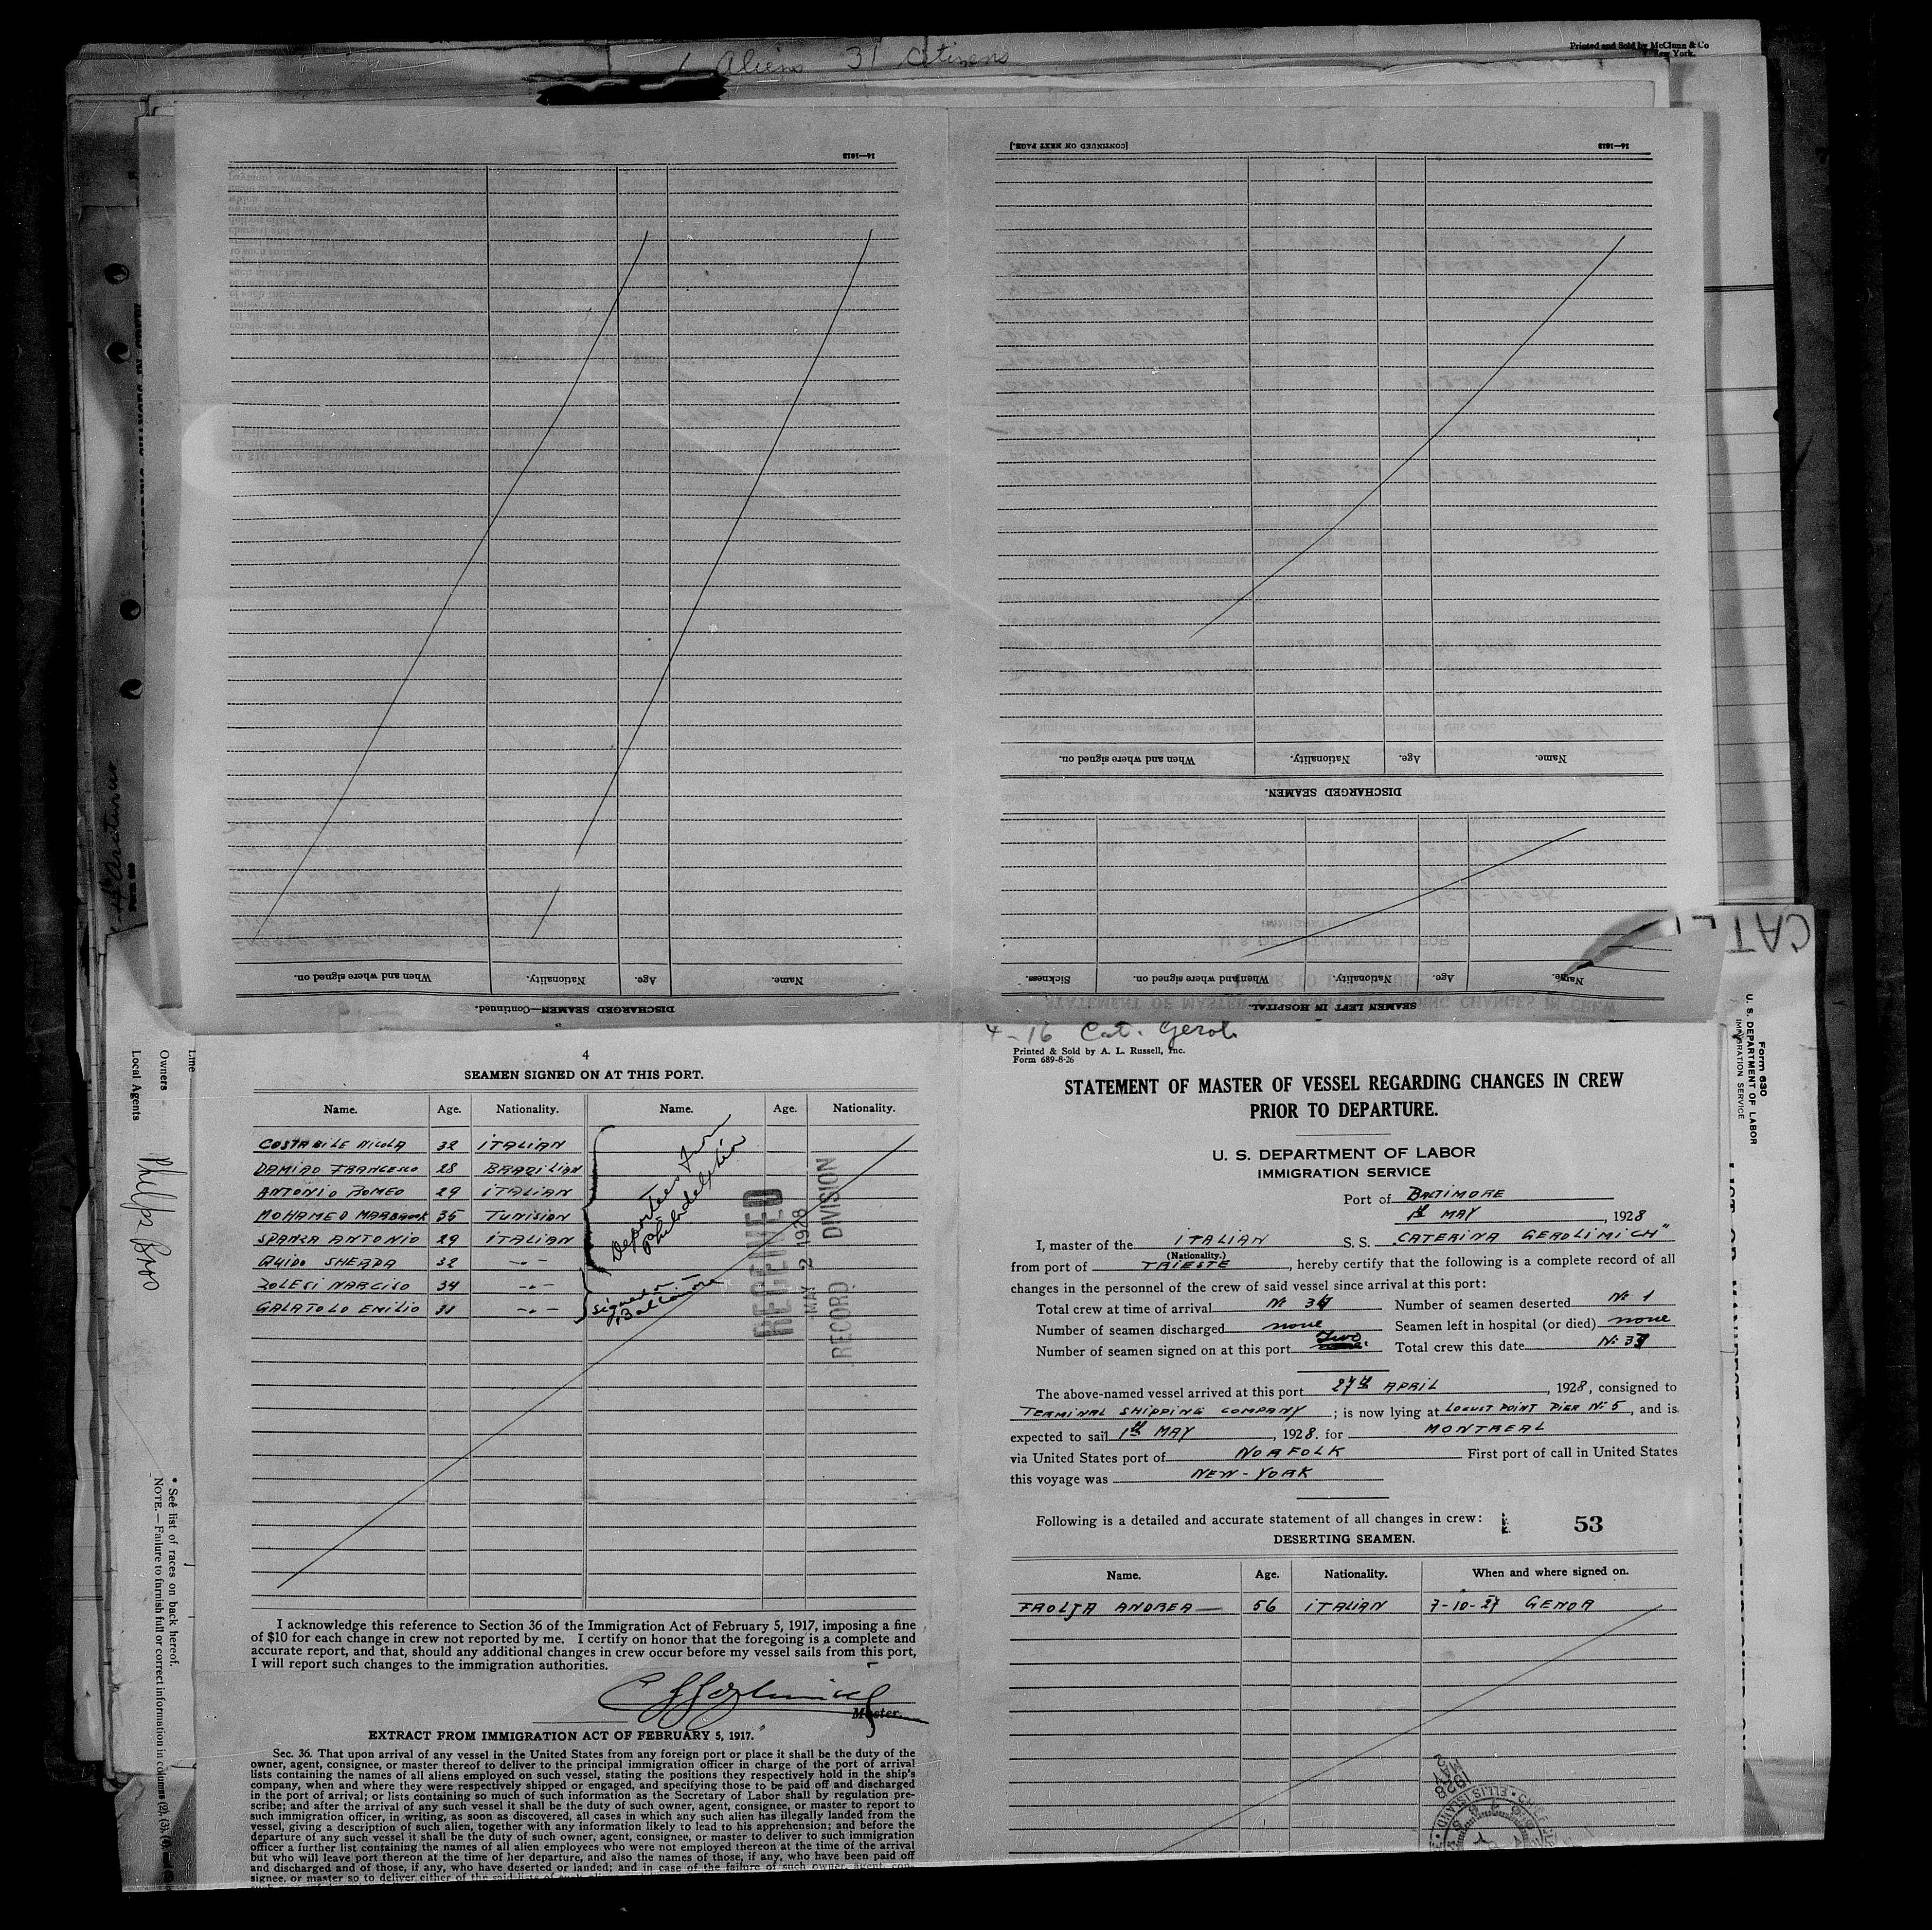 1 Aliens 31 Citizens
Printed and Sold by McClunn & Co
New York.
14—1613
[CONTINUED ON NEXT PAGE.]
14—1613
Name. Age. Nationality. When and where signed on.
DISCHARGED SEAMEN.
Name. Age. Nationality. When and where signed on. Sickness.
SEAMEN LEFT IN HOSPITAL.
Name. Age. Nationality. When and where signed on.
DISCHARGED SEAMEN—Continued.
CAT
4-16 Cat. Geroli
4
SEAMEN SIGNED ON AT THIS PORT.
Name. Age. Nationality. Name. Age. Nationality.
COSTABILE NICOLA 32 ITALIAN
DAMIAO FRANCESCO 28 BRAZILIAN
ANTONIO ROMEO 29 ITALIAN
MOHAMED MARBROOK 35 TUNISIAN
SPANZA ANTONIO 29 ITALIAN
QUIDO SHERPA 32 -"-
ZOLESI NARCISO 34 -"-
GALATOLO EMILIO 31 -"-
Deportees from
Philadelphia
signed on
Baltimore
RECEIVED
MAY 2 1928
RECORD DIVISION
I acknowledge this reference to Section 36 of the Immigration Act of February 5, 1917, imposing a fine
of $10 for each change in crew not reported by me. I certify on honor that the foregoing is a complete and
accurate report, and that, should any additional changes in crew occur before my vessel sails from this port,
I will report such changes to the immigration authorities.
Master.
EXTRACT FROM IMMIGRATION ACT OF FEBRUARY 5, 1917.
Sec. 36. That upon arrival of any vessel in the United States from any foreign port or place it shall be the duty of the
owner, agent, consignee, or master thereof to deliver to the principal immigration officer in charge of the port of arrival
lists containing the names of all aliens employed on such vessel, stating the positions they respectively hold in the ship's
company, when and where they were respectively shipped or engaged, and specifying those to be paid off and discharged
in the port of arrival; or lists containing so much of such information as the Secretary of Labor shall by regulation pre-
scribe; and after the arrival of any such vessel it shall be the duty of such owner, agent, consignee, or master to report to
such immigration officer, in writing, as soon as discovered, all cases in which any such alien has illegally landed from the
vessel, giving a description of such alien, together with any information likely to lead to his apprehension; and before the
departure of any such vessel it shall be the duty of such owner, agent, consignee, or master to deliver to such immigration
officer a further list containing the names of all alien employees who were not employed thereon at the time of the arrival
but who will leave port thereon at the time of her departure, and also the names of those, if any, who have been paid off
and discharged and of those, if any, who have deserted or landed; and in case of the failure of such owner, agent, con-
signee, or master so to deliver either of the said lists of such
Printed & Sold by A. L. Russell, Inc.
Form 689-8-26
STATEMENT OF MASTER OF VESSEL REGARDING CHANGES IN CREW
PRIOR TO DEPARTURE.
U. S. DEPARTMENT OF LABOR
IMMIGRATION SERVICE
Port of BALTIMORE
1st MAY, 1928
I, master of the ITALIAN S. S. CATERINA GEROLIMICH"
(Nationality.)
from port of TRIESTE, hereby certify that the following is a complete record of all
changes in the personnel of the crew of said vessel since arrival at this port:
Total crew at time of arrival Nº 3 Number of seamen deserted Nº 1
Number of seamen discharged none Seamen left in hospital (or died) none
Number of seamen signed on at this port Two Total crew this date Nº 3
The above-named vessel arrived at this port 27th APRIL, 1928, consigned to
TERMINAL SHIPPING COMPANY; is now lying at LOCUST POINT PIER Nº 5, and is
expected to sail 1st MAY, 1928. for MONTREAL
via United States port of NORFOLK First port of call in United States
this voyage was NEW-YORK
Following is a detailed and accurate statement of all changes in crew:
53
DESERTING SEAMEN.
Name. Age. Nationality. When and where signed on.
FROLJA ANDREA 56 ITALIAN 7-10-27 GENOA
MAY 2
1928
ELLIS ISLAND
Line
Owners
Local Agents
Phelps Bros
* See list of races on back hereof.
NOTE.—Failure to furnish full or correct information in columns (2), (3), (4), and
Form 630
U. S. DEPARTMENT OF LABOR
IMMIGRATION SERVICE